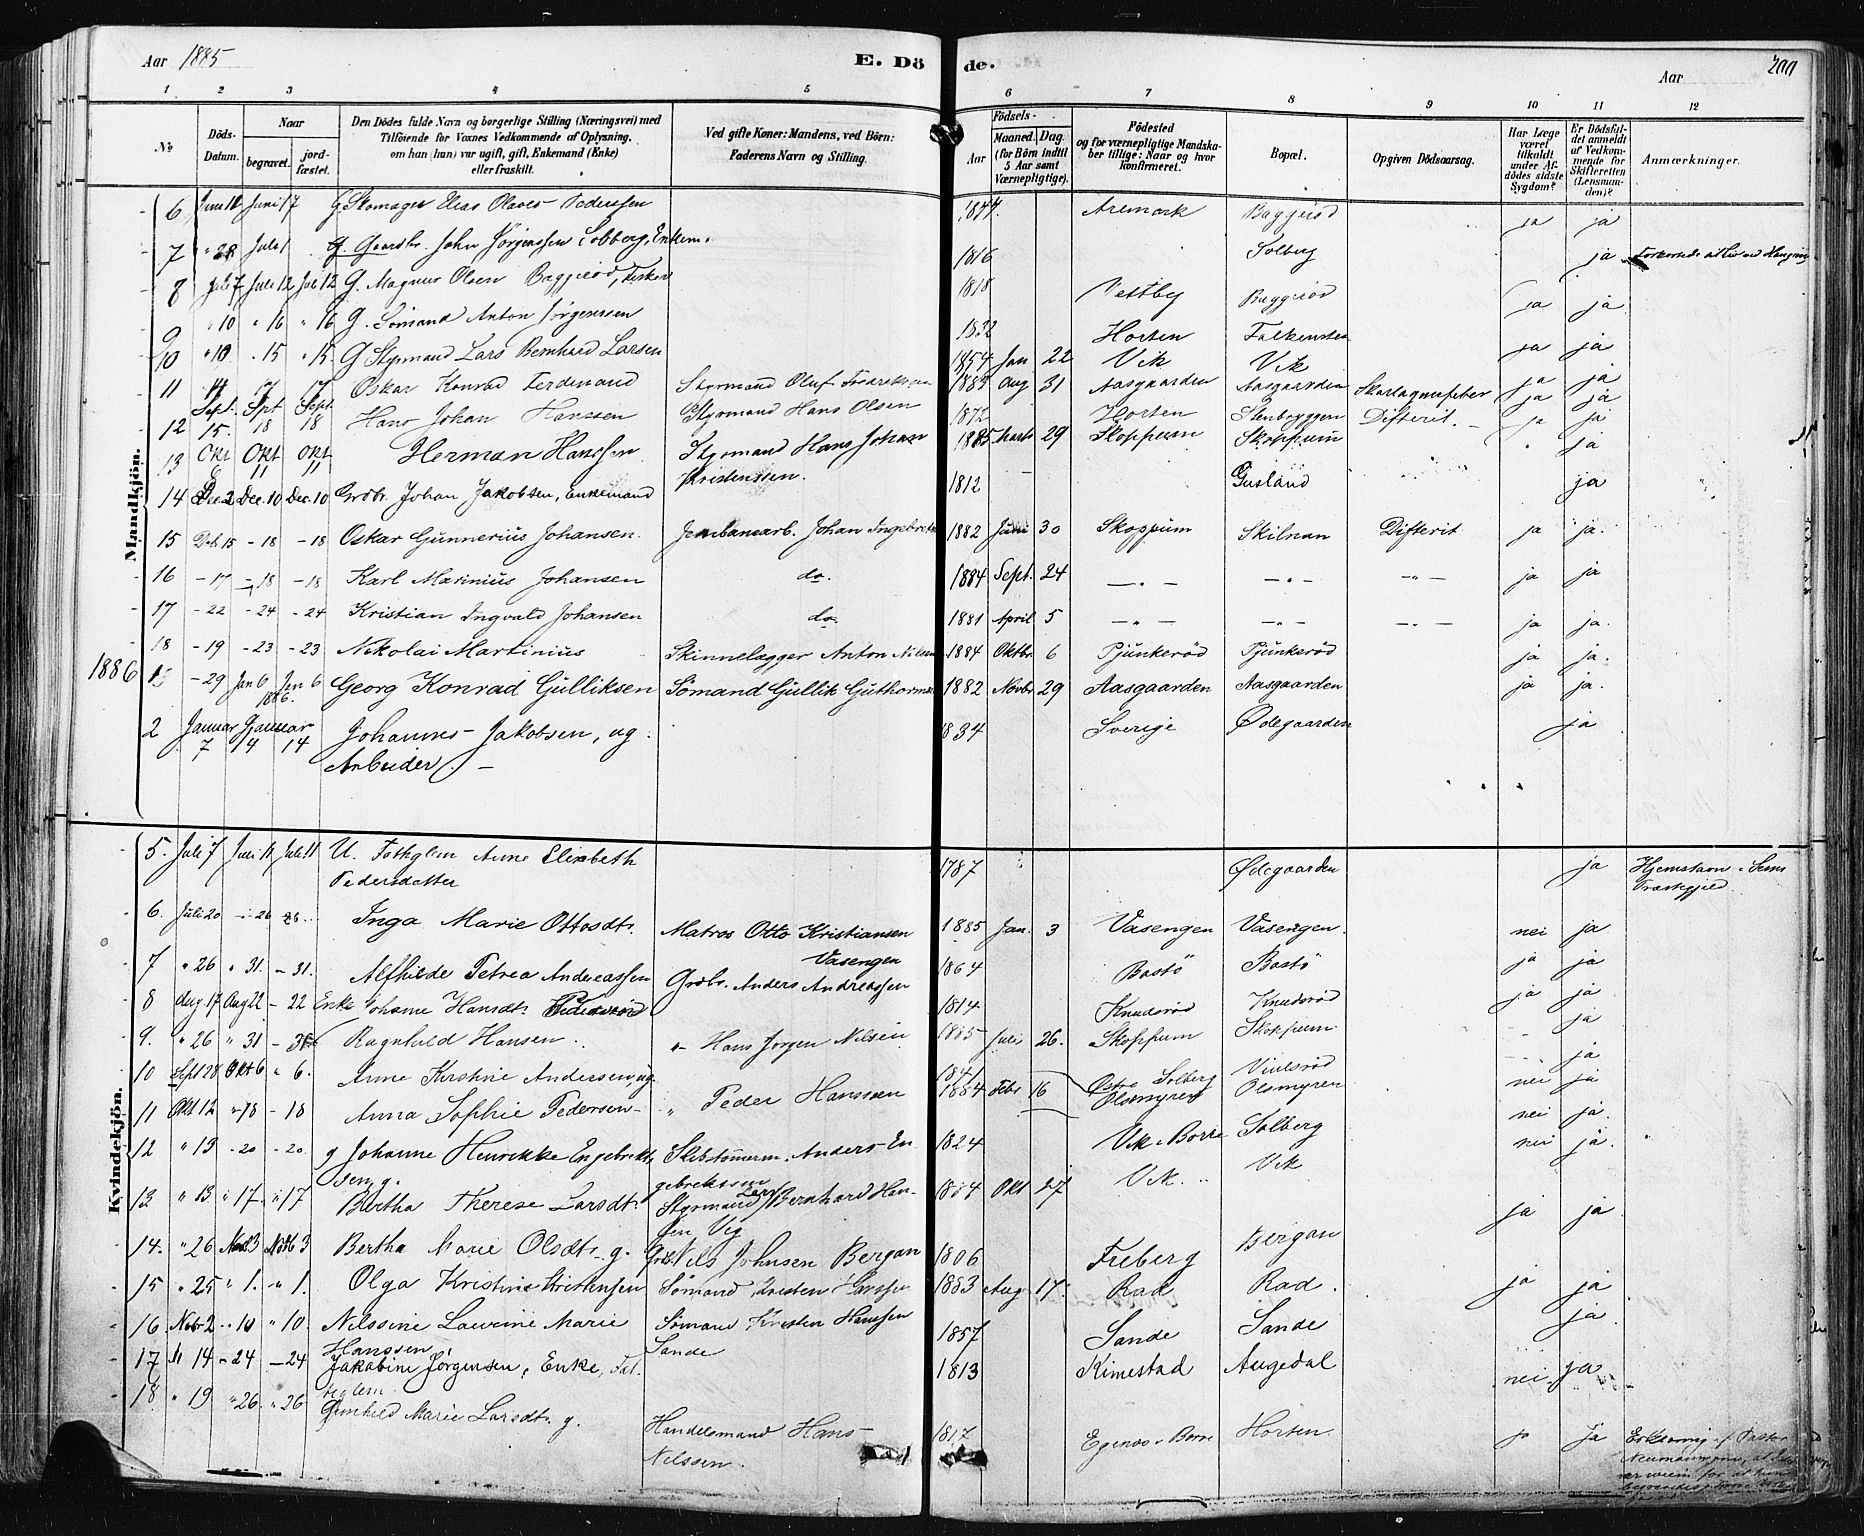 Aar 1885
E. Dö
de.
Aar
200
1 2 3 4 5 6 7 8 9 10 11 12
No
Döds-Datum.
Naar
begravet.
jord-fæstet.
Den Dödes fulde Navn og borgerlige Stilling (Næringsvei) med
Tilföiende for Voxnes Vedkommende af Oplysning,
om han (hun) var ugift, gift, Enkemand (Enke)
eller fraskilt.
Ved gifte Koner: Mandens, ved Börn:
Faderens Navn og Stilling.
Aar
Födsels-
Maaned. Dag.
(for Börn indtil
5 Aar samt
Værnepligtige).
Födested
og for værnepligtige Mandska-
ber tillige: Naar og hvor
konfirmeret.
Bopæl.
Opgiven Dödsaarsag.
Har Læge
været
tilkaldt
under Af-
dödes sidste
Sygdom?
Er Dödsfal-
det anmeldt
af Vedkom-
mende for
Skifteretten
(Lensman-
den)?
Anmærkninger.
Mandkjön.
6 Juni Juni 17 G Skomager Elias Olaves Pedersen 1844. Aremark Baggeröd ja ja
7 " 28 Juli 1 G. Gaardbr. John Jörgenssen Solberg, Enkem. 1816 Solberg ja
8 Juli 7 Juli 12 Juli 12 G. Magnus Olsen Baggeröd, Fisker 1818 Vestby Baggeröd ja ja
9 " 10 " 16 " 16 G. Sömand Anton Jörgenssen 1832 Horten Falkensten ja ja
10 " 10 " 15 " 15 G Styrmand Lars Bernhard Larsen 1854 Jan 22 Vik Vik ja ja
11 14 17 17 Oskar Konrad Ferdinand Styrmand Oluf 1883 Aug 31 Aasgaarden Aasgaarden Skarlagensfeber ja ja
12 Sept. 15. Spt 18 Sept. 18 Hans Johan Hanssen Styrmand Hans Olsen 1872 Horten Stenbryggen Difterit. ja ja
13 Okt 6 Okt 11 Okt 11 Herman Hanssen Styrmand Hans Johan 1885 Marts 29 Skoppum Skoppum ja
Kristenssen.
14 Dec 2 Dec. 10 Dec. 10 Grdbr. Johan Jakobsen, Enkemand 1812 Gusland ja
15 15 - 18 - 18 Oskar Gunnerius Johansen. Jernbanearb. Johan 1882 Juni 30 Skoppum Skilnan Difterit ja ja.
16 - 17 - 18 - 18 Karl Marinius Johansen do. 1884 Sept. 24 - " - - " - - " - ja ja
17 - 22 - 24 - 24 Kristian Ingvald Johansen do. 1881 April 5 - " - - " - - " - ja ja.
18 - 19 - 23 - 23 Nikolai Martinius Skinnelægger Anton Nilsen 1884 Oktbr. 6 Pjunkeröd Pjunkeröd ja ja.
1886
- 29 Jan 6 Jan 6 Georg Konrad Gulliksen Sömand Gullik Guthorms 1882 Novbr 29 Aasgaarden Aasgaarden ja ja.
1886.
2 Januar 7 Januar 14 14 Johannes Jakobsen, ug. 1834 Sverige Ödegaarden ja
Arbeider. -
Kvindekjön.
5. Juli 7 Juli 11 Juli 11 U. Fatiglem Anne Elisabeth 1787 Ödegaarden ja Hjemstavn i Sems
Pedersdatter Præstegjeld
6. Juli 20 - 26 26 Inga Marie Ottosdtr. Matros Otto Kristiansen 1885 Jan. 3 Vasengen Vasengen. nei ja
Vasengen
7 " 26 " 31. - 31. Alfhilde Petrea Andreassen Grdbr. Anders Andreassen 1864 Bastö Bastö ja ja
8 Aug 17 Aug 22 - 22 Enke Johanne Hansdtr. 1814 Knudsröd Knudsröd ja ja
9. " 26 " 31 - 31 Ragnhild Hansen " Hans Jörgen Nilsen 1885 Juli 26. Skoppum Skoppum. ja
10 Sept 28 Okt 6 " 6. Anne Kirstine Andersen, ug. 1841 Östre Solberg ja
11 Okt 12 " 18 - 18 Anna Sophie Pedersen - " Peder Hanssen 1884 Febr 16 Olsmyren Olsmyren nei ja
12 " 13 - 20 - 20. g Johanne Henrikke Engebrekt- Skibstömrm. Anders En 1824 Vik i Borre Solberg nei ja.
sen, g. gebrektsen
13 " 13 " 17. " 17 Bertha Therese Larsdtr. Styrmand Lars Bernhard Han- 1884 Okt 27 Vik. Vik nei ja.
sen Vig
14. " 26 3 3 Bertha Marie Olsdtr. g. Nils Johnsen Bergan 1806 Freberg Bergan ja ja
15 " 25 " 1. " 1. Olga Kristine Kristensen Sömand Kristen 1883 Aug 17. Rad Rad. ja ja
16. Nobr 2 " 10 " 10. Nilssine Laurine Marie Sömand Kristen Hanssen 1857 Sande Sande ja
Hanssen, Sande
17 14 - 24 - 24 Jakobine Jörgensen, Enke, Fat- 1813 Kimestad Augedal nei ja
tiglem.
18 " 19 " 26. " 26 Gunhild Marie Larsdtr. g. Handelsmand Hans 1817 Borre Horten ja ja Erklæring af Pastor
Nilssen.